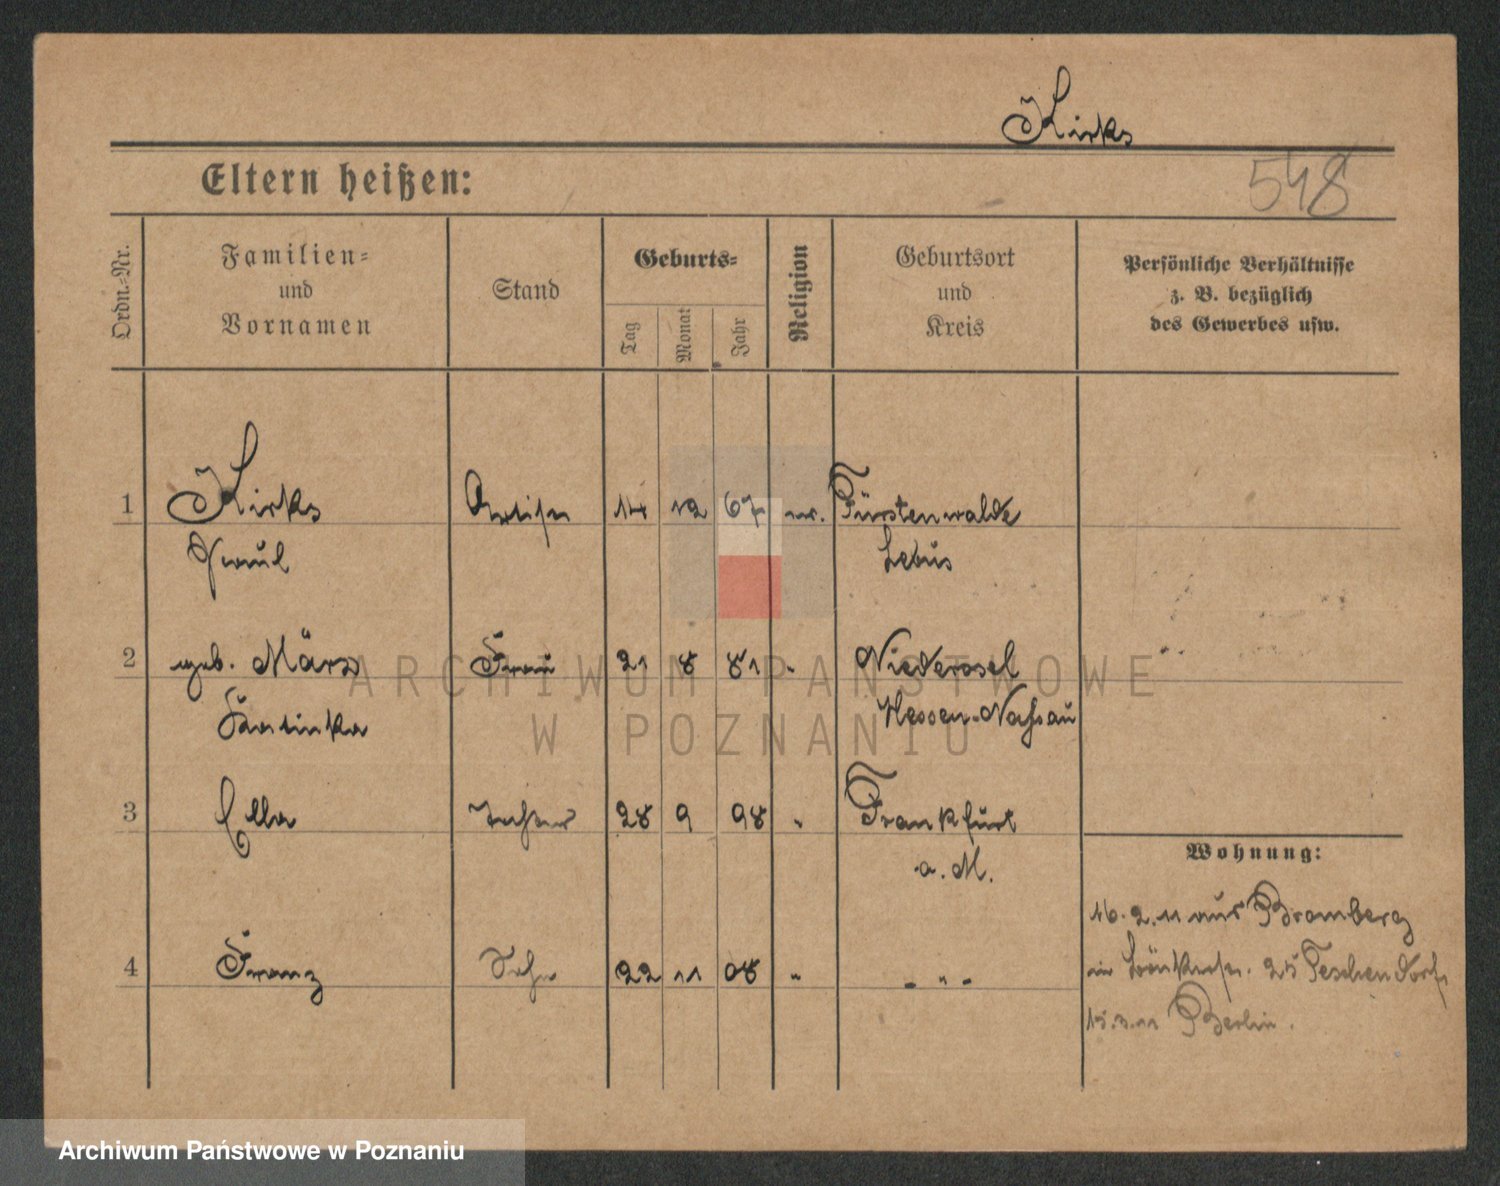 Kirks
548
Eltern heißen:
Ordn.-Nr.
Familien-
und
Vornamen
Stand
Geburts-
Tag
Monat
Jahr
Religion
Geburtsort
und
Kreis
Persönliche Verhältnisse
z. B. bezüglich
des Gewerbes usw.
1 Kirks Artist 14 12 67 ev. Fürstenwalde
Paul Lebus
2 geb. Märss Frau 21 8 81 " Niederosel
Katinka Hessen-Nassau
3 Ella Tochter 28 9 98 " Frankfurt
a. M.
Wohnung:
16.2.11 aus Bromberg
4 Franz Sohn 22 11 08 " - " -
in 25 Teschendorf
15.3.11 Berlin.
ARCHIWUM PAŃSTWOWE
W POZNANIU
Archiwum Państwowe w Poznaniu